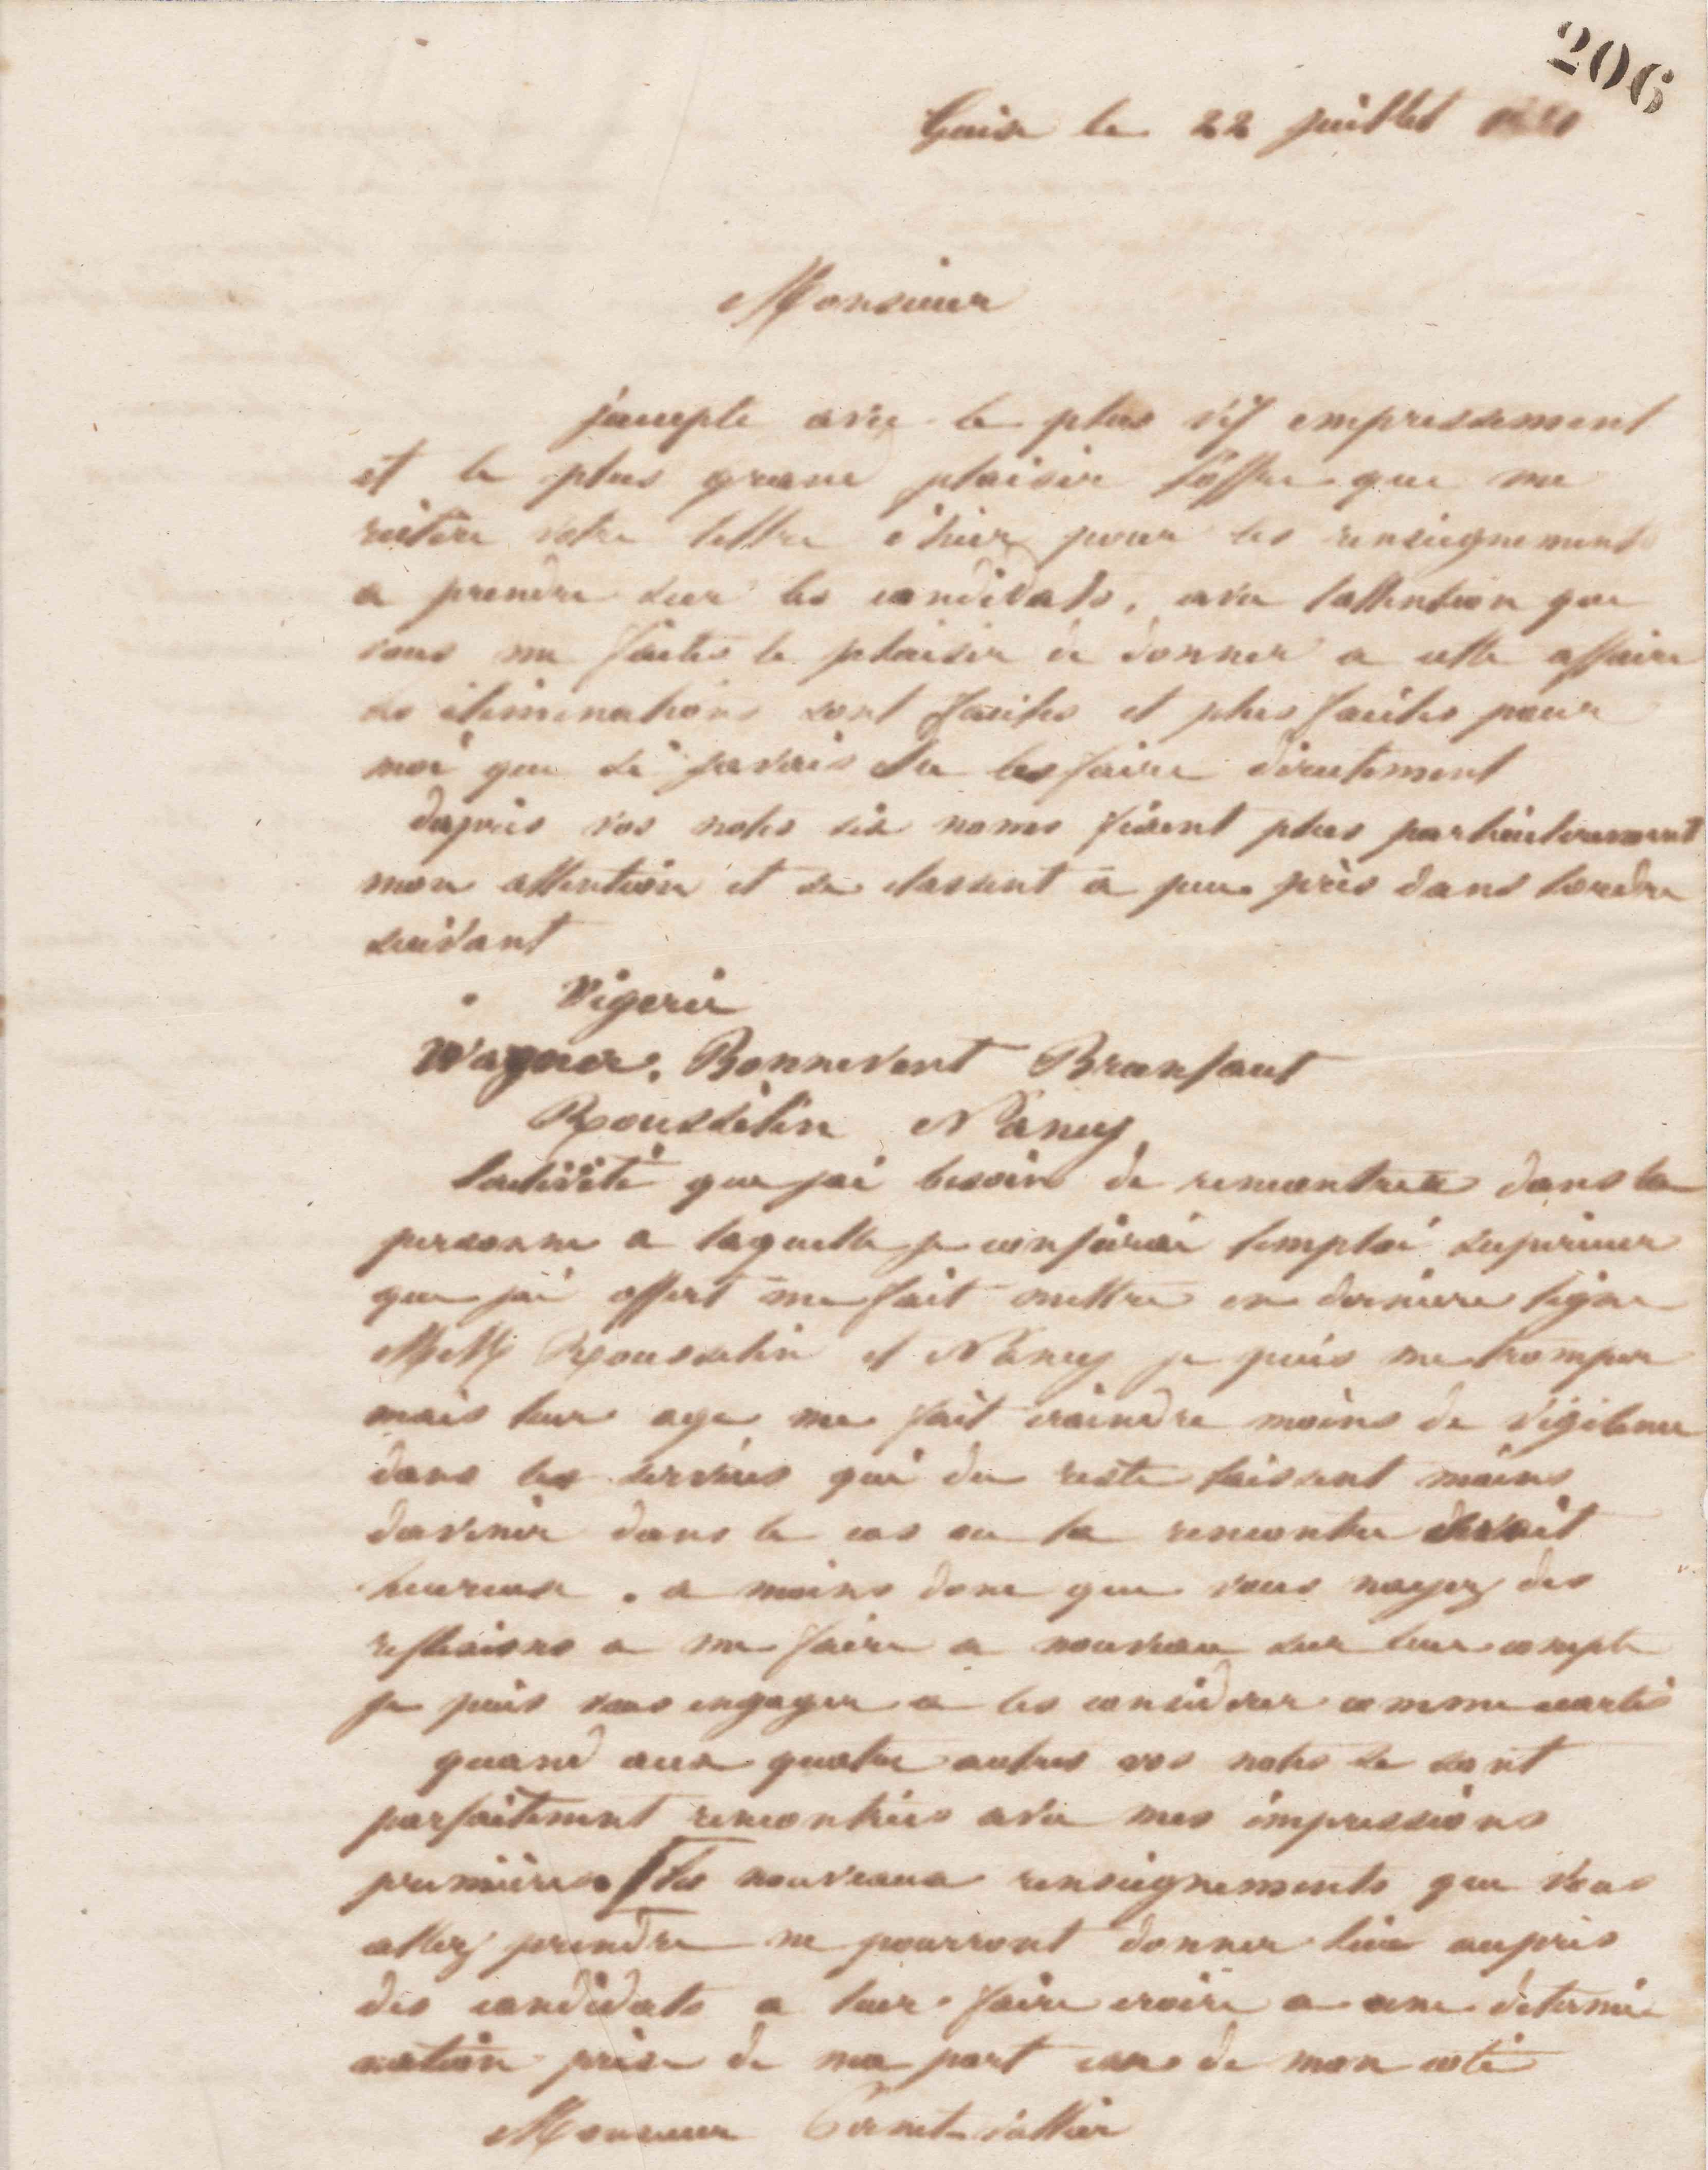 206
Guise le 22 juillet
Monsieur
j'accepte avec le plus vif empressement
et le plus grand plaisir l'offre que me
réitère votre lettre d'hier pour les renseignements
a prendre sur les candidats, avec lattention que
vous me faites le plaisir de donner a cette affaire
les éliminations sont faciles et plus faciles pour
moi que si javais du les faire directement
dapres vos notes six noms fixent plus particulierement
mon attention et se classent à peu près dans lordre
suivant
Vigerie
Wagner. Bonnevent Branfaut
Rousselin Nancy
lactivité que jai besoin de rencontrer dans la
personne a laquelle je confierai lemploi superieur
que jai offert me fait mettre en derniere ligne
MM Rousselin et Nancy je puis me tromper
mais leur age me fait craindre moins de vigilence
dans les services qui du reste laissent moins
davenir dans le cas ou la rencontre serait
heureuse. a moins donc que vous nayez des
reflexions a me faire a nouveau sur leur compte
je puis vous engager a les considerer comme ecartés
quand aux quatre autres vos notes se sont
parfaitement rencontrées avec mes impressions
premières. [les nouveaux renseignements que vous
allez prendre ne pourront donner lieu aupres
des candidats a leur faire croire a une determi
nation prise de ma part car de mon coté
Monsieur